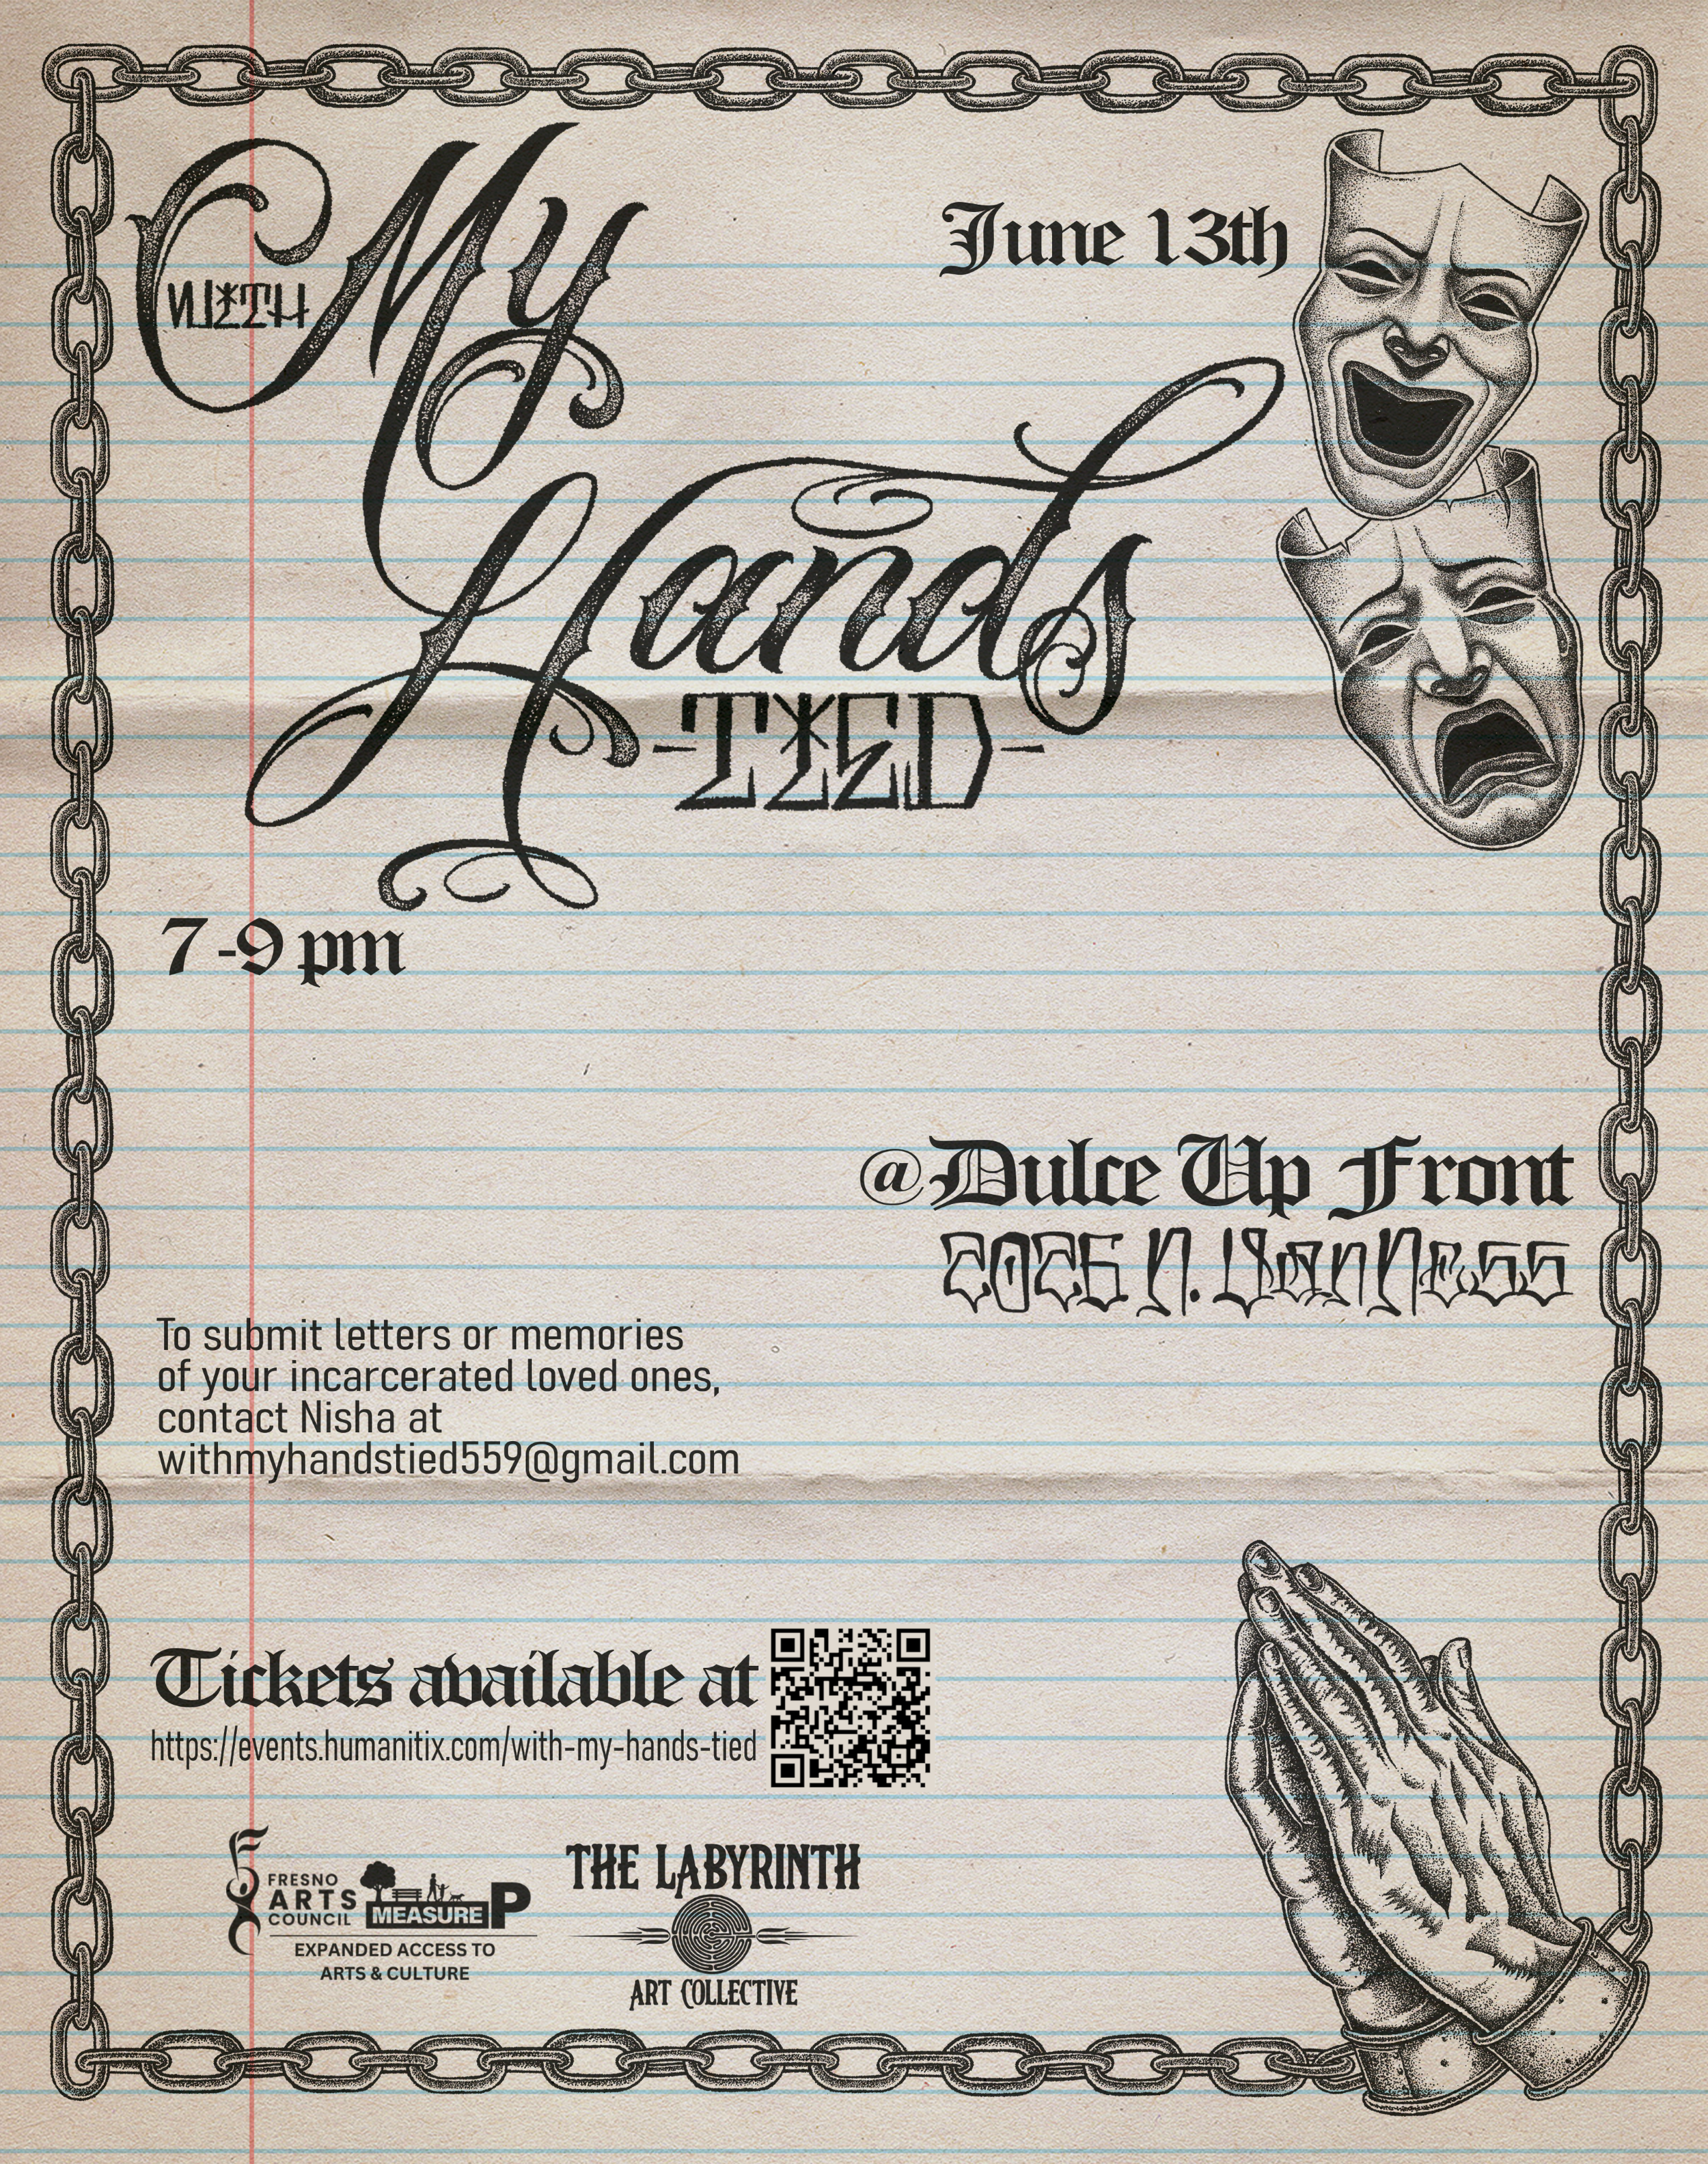 June 13th
WITH
My
Hands
-TIED-
7-9 pm
@Dulce Up Front
2026 N. Van Ness
To submit letters or memories
of your incarcerated loved ones,
contact Nisha at
withmyhandstied559@gmail.com
Tickets available at
https://events.humanitix.com/with-my-hands-tied
FRESNO
ARTS
COUNCIL
MEASURE P
EXPANDED ACCESS TO
ARTS & CULTURE
THE LABYRINTH
ART COLLECTIVE